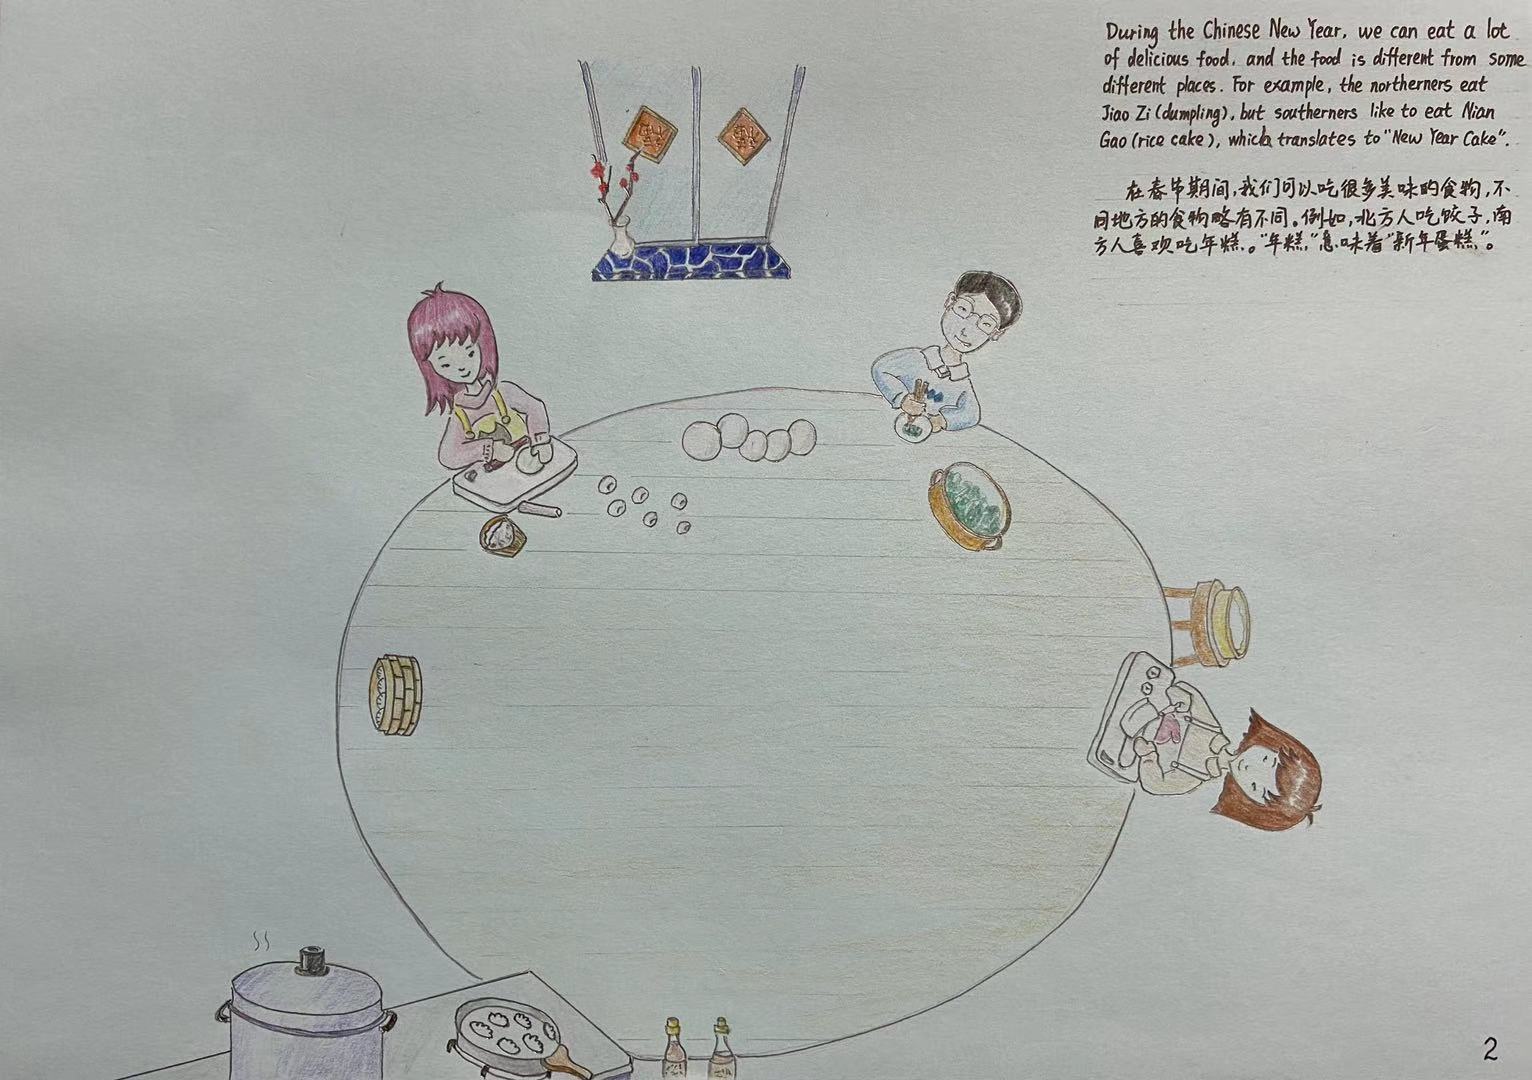 During the Chinese New Year, we can eat a lot
of delicious food, and the food is different from some
different places. For example, the northerners eat
Jiao Zi (dumpling), but southerners like to eat Nian
Gao (rice cake), which translates to "New Year Cake".
在春节期间,我们可以吃很多美味的食物,不
同地方的食物略有不同。例如,北方人吃饺子,南
方人喜欢吃年糕。"年糕,"意味着"新年蛋糕"。
福
福
2